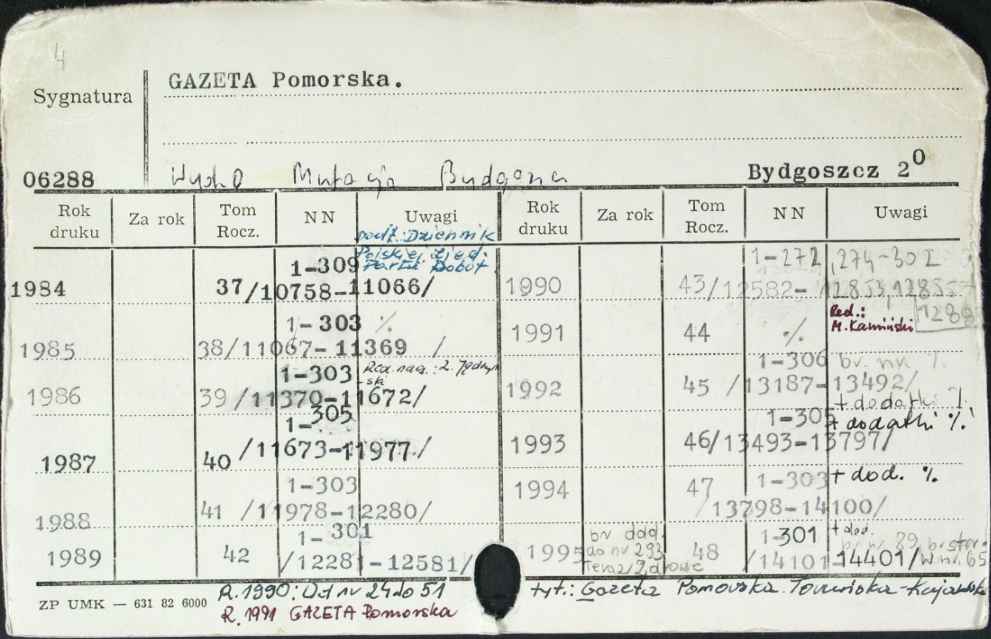 4
GAZETA Pomorska.
Sygnatura
06288 Mutacja Bydgoszcz 2⁰
Rok druku Za rok Tom Rocz. NN Uwagi Rok druku Za rok Tom Rocz. NN Uwagi
podt.: Dziennik
Polskiej Zjed.
Partii Robot.
1984 37 1-309 /10758-11066/
1985 38 1-303 % /11067-11369 /
1986 39 1-303 /11370-11672/
Red. nacz.: Z. Jędrzyń
ski
1987 40 1-305 /11673-11977/
1988 41 1-303 /11978-12280/
1989 42 1-301 /12281-12581/
1990 43 1-272, 274-302 /12582-12853, 12855-
1991 44 %
Red.:
M. Kamiński
1992 45 1-306 br. nr %. /13187-13492/
+ dodatki %
1993 46 1-305 + dodatki % /13493-13797/
1994 47 1-303 + dod. % 13798-14100/
1995 br dod. do nr 293 48 1-301 + dod. /14101-14401/
br. nr 89, br. stor. w nr. 65
ZP UMK — 631 82 6000
R. 1990: Od nr 24 do 51 tyt.: Gazeta Pomorska Toruńska-Kujawska
R. 1991 GAZETA Pomorska